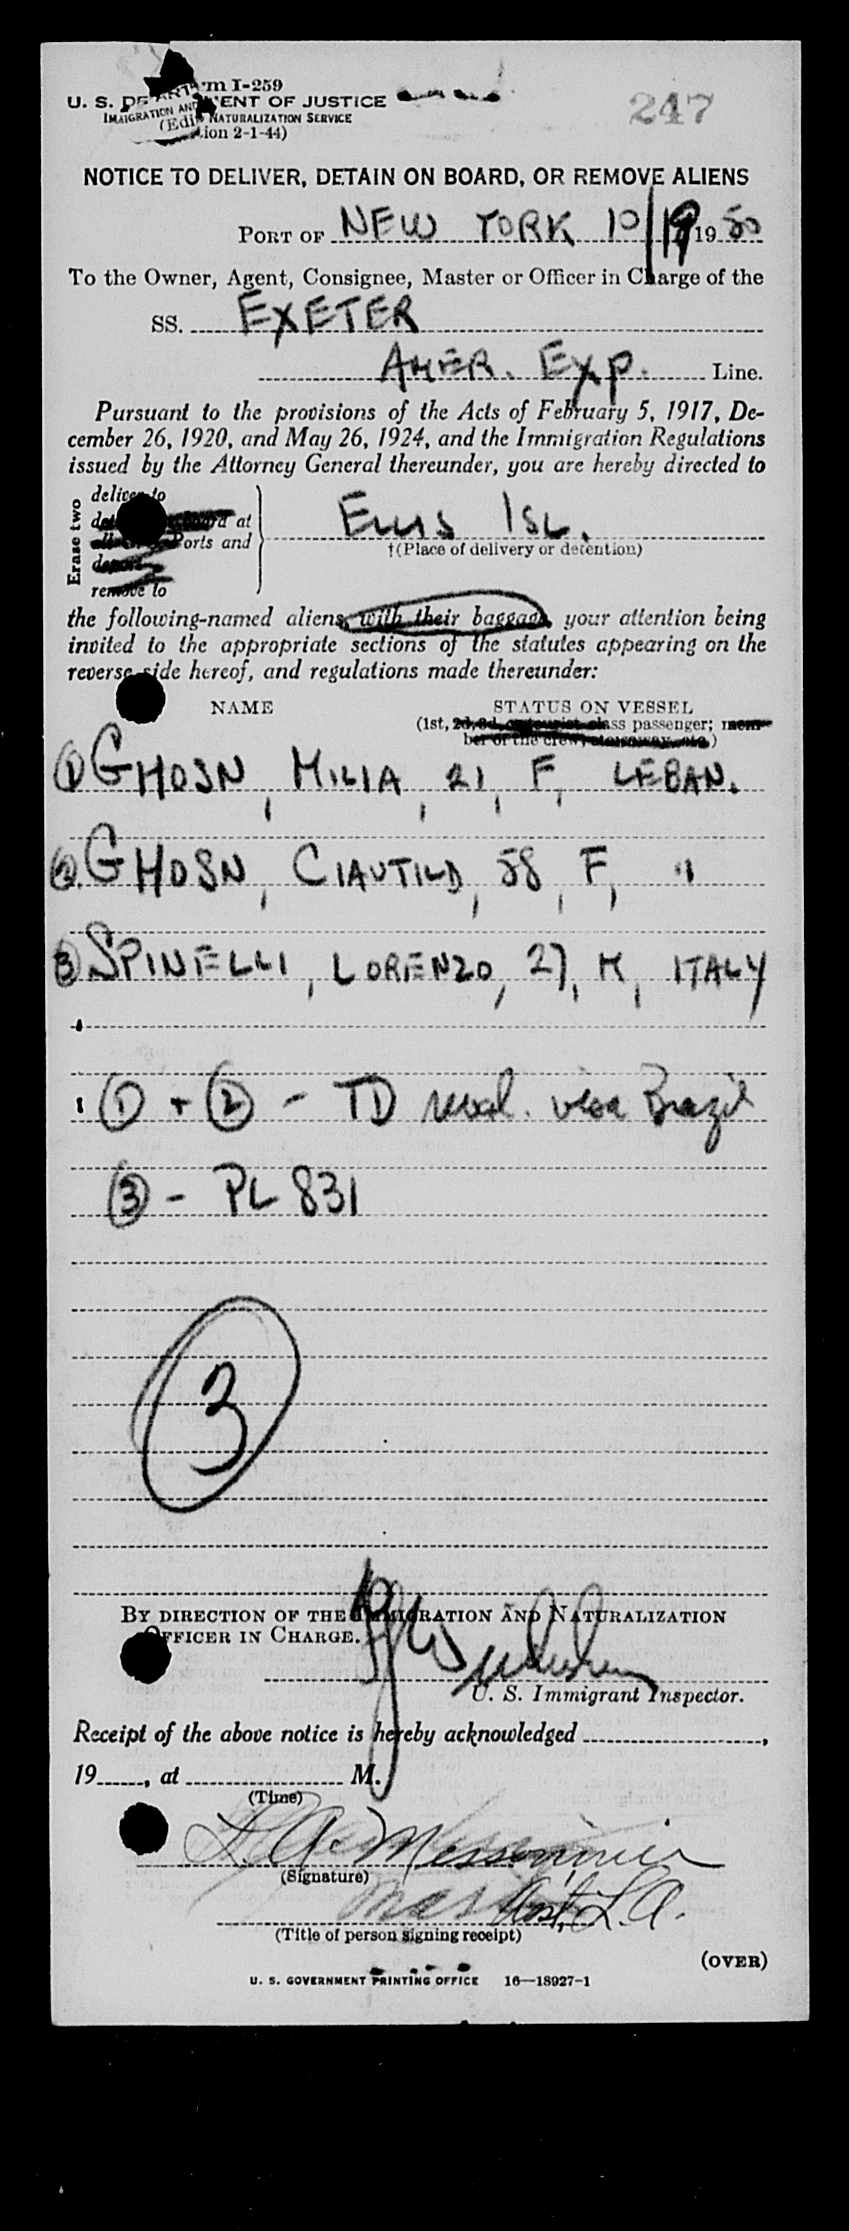 Form I-259
U. S. DEPARTMENT OF JUSTICE
IMMIGRATION AND NATURALIZATION SERVICE
(Edition 2-1-44)
247
NOTICE TO DELIVER, DETAIN ON BOARD, OR REMOVE ALIENS
PORT OF NEW YORK 10/19 1950
To the Owner, Agent, Consignee, Master or Officer in Charge of the
SS. EXETER
AMER. EXP. Line.
Pursuant to the provisions of the Acts of February 5, 1917, De-
cember 26, 1920, and May 26, 1924, and the Immigration Regulations
issued by the Attorney General thereunder, you are hereby directed to
Erase two
deliver to
at
Ports and
deport
remove to
ELLIS ISL.
†(Place of delivery or detention)
the following-named aliens, with their baggage, your attention being
invited to the appropriate sections of the statutes appearing on the
reverse side hereof, and regulations made thereunder:
NAME STATUS ON VESSEL
(1st, 2d, 3d, or tourist class passenger; mem-
ber of the crew, stowaway, etc.)
① GHOSN, MILIA, 21, F, LEBAN.
② GHOSN, CIAUTILD, 58, F, "
③ SPINELLI, LORENZO, 27, M, ITALY
① + ② - TD reval. visa Brazil
③ - PL 831
3
BY DIRECTION OF THE IMMIGRATION AND NATURALIZATION
OFFICER IN CHARGE.
U. S. Immigrant Inspector.
Receipt of the above notice is hereby acknowledged ,
19 , at M.
(Time)
L. A.
(Signature)
Asst. L. A.
(Title of person signing receipt)
(OVER)
U. S. GOVERNMENT PRINTING OFFICE 16—18927-1